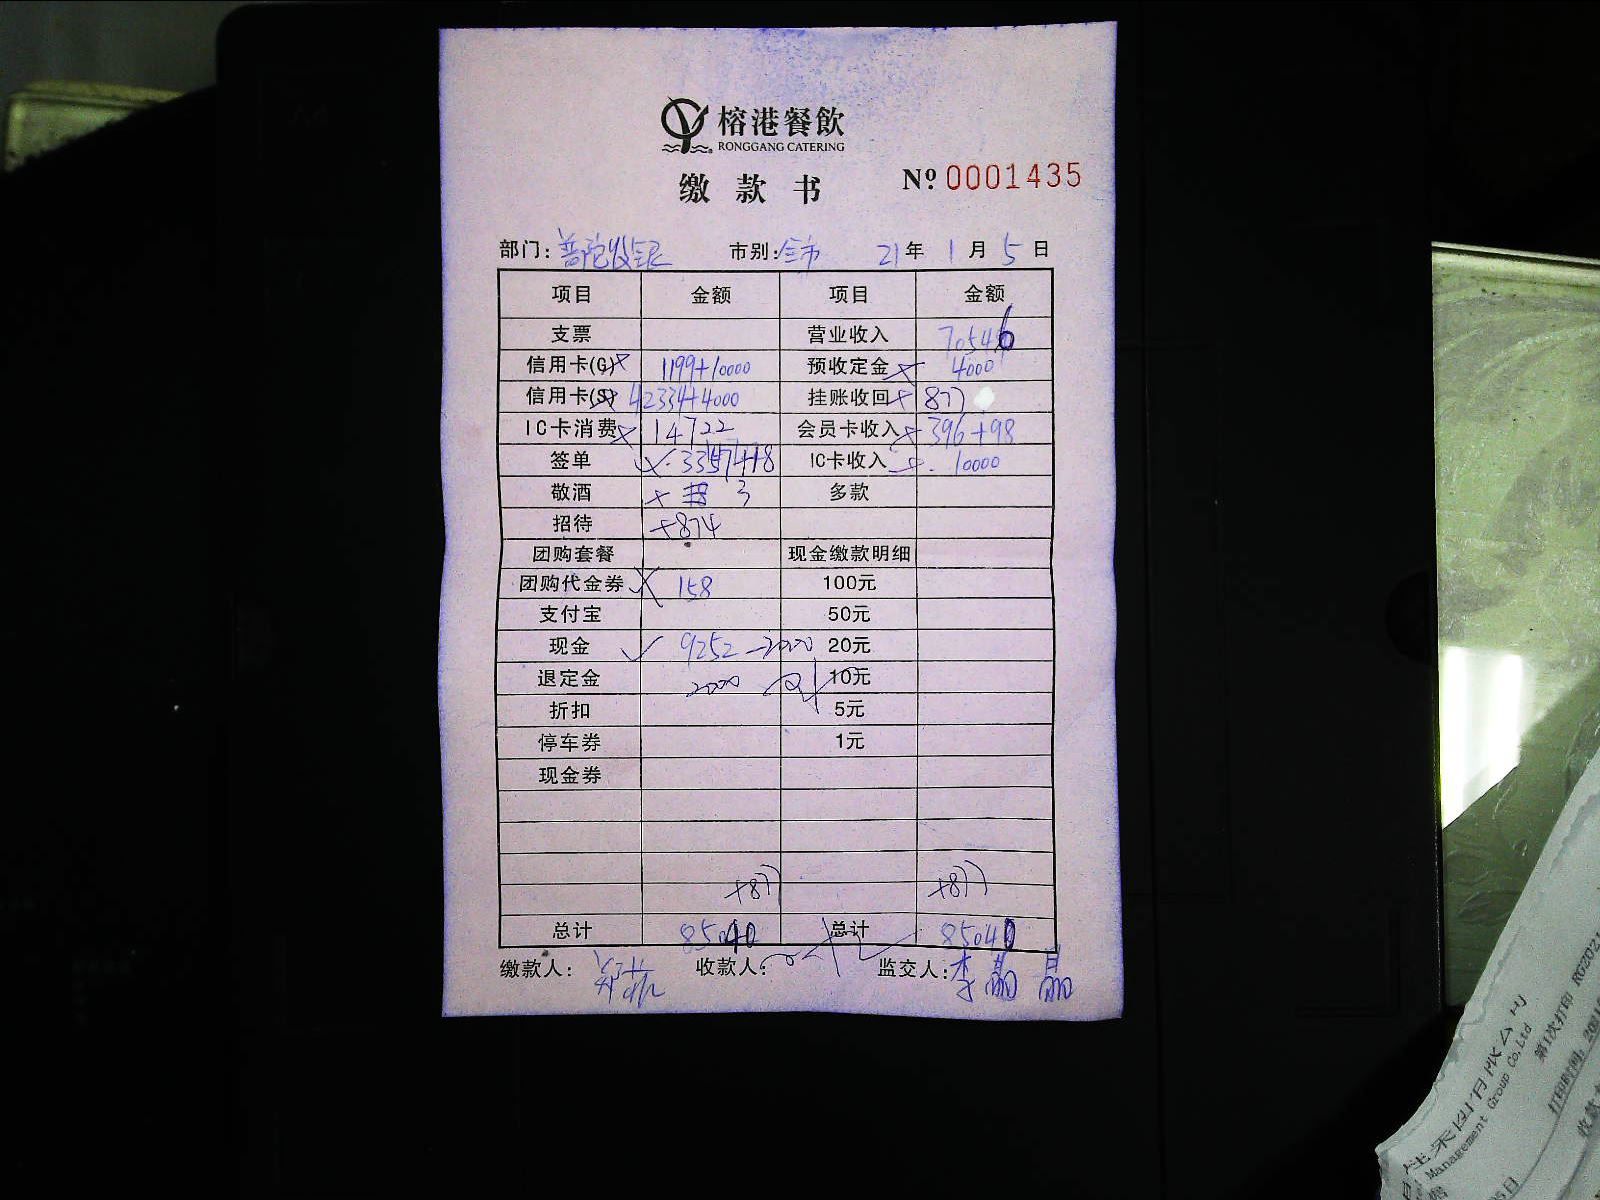 榕港餐飲
RONGGANG CATERING
缴款书 Nº 0001435
部门: 普陀收银 市别: 全市 21年 1月 5日
项目 金额 项目 金额
支票 营业收入 70546
信用卡(G) 1199+10000 预收定金 4000
信用卡(S) 42334+4000 挂账收回 877
IC卡消费 14722 会员卡收入 396+98
签单 3357+18 IC卡收入 10000
敬酒 3 多款
招待 +874
团购套餐 现金缴款明细
团购代金券 158 100元
支付宝 50元
现金 9252-2000 20元
退定金 2000 10元
折扣 5元
停车券 1元
现金券
+877 +877
总计 85040 总计 85040
缴款人: 收款人: 监交人: 李晶晶
Management Group Co.,Ltd
第1次打印
打印时间: